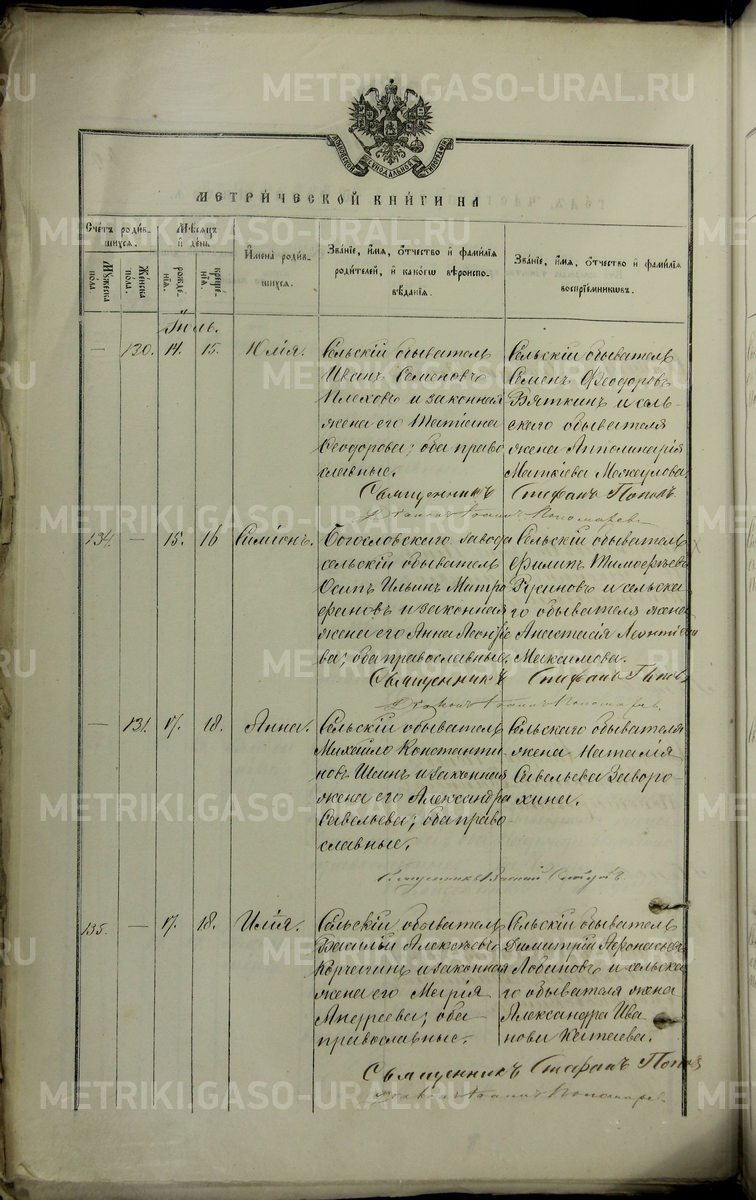 METRIKI.GASO-URAL.RU
МОСКОВСКОЙ СѴНОДАЛЬНОЙ ТИПОГРАФІИ
МЕТРИЧЕСКОЙ КНИГИ НА
Счетъ родив-
шихся.
Мужеска
пола.
Женска
пола.
Мѣсяцъ
и день.
рожде-
нія.
креще-
нія.
Имена родив-
шихся.
Званіе, имя, отчество и фамилія
родителей, и какогѡ вѣроиспо-
вѣданія.
Званіе, имя, отчество и фамилія
воспріемникѡвъ.
Іюль.
— 130. 14. 15. Юлія.
Сельскій обыватель
Иванъ Семеновъ
и законная
жена его Татіана
Ѳеодорова; оба право
славные.
Сельскій обыватель
Семенъ Ѳеодоровъ
Вяткинъ и сель-
скаго обывателя
жена Апполинарія
Священникъ Стефанъ Поповъ
Діаконъ Іоаннъ Пономаревъ
134. — 15. 16 Симіонъ.
Богословскаго завода
сельскій обыватель
Осипъ Ильинъ Митро
фановъ и законная
жена его Анна Леонтіе
ва; оба православные.
Сельскій обыватель
Филипъ Тимофѣевъ
и сельска
го обывателя жена
Анастасія Леонтіева
Максимова.
Священникъ Стефанъ Поповъ
Діаконъ Іоаннъ Пономаревъ
— 131. 17. 18. Анна.
Сельскій обыватель
Михайло Константи-
новъ Шеинъ и законная
жена его Александра
Савельева; оба право-
славные.
Сельскаго обывателя
жена Наталія
Савельева Заворо-
хина.
Священникъ
135. — 17. 18. Илія.
Сельскій обыватель
Василій Алексѣевъ
Корчагинъ и законная
жена его Марія
Андреева; оба
православные.
Сельскій обыватель
Димитрій Афонасьевъ
Лобановъ и сельска
го обывателя жена
Александра Ива
нова Китаева.
Священникъ Стефанъ Поповъ
Діаконъ Іоаннъ Пономаревъ